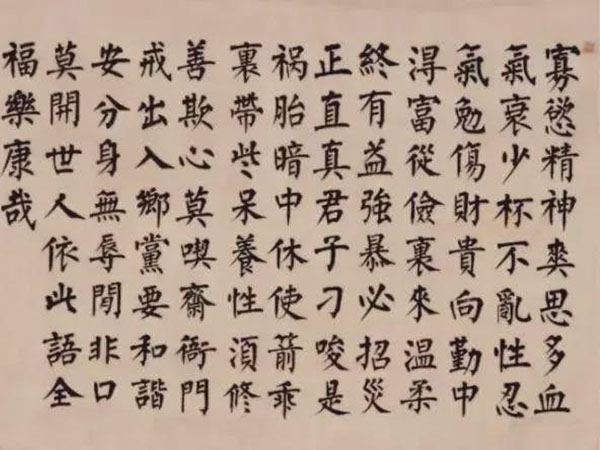 寡慾精神爽思多血
氣衰少杯不亂性忍
氣勉傷財貴向勤中
淂富從儉裏來温柔
終有益強暴必招災
正直真君子刁唆是
祸胎暗中休使箭乖
裏帶些呆養性湏修
善欺心莫喫齋衙門
戒出入鄉黨要和諧
安分身無辱閒非口
莫開世人依此語全
福樂康哉